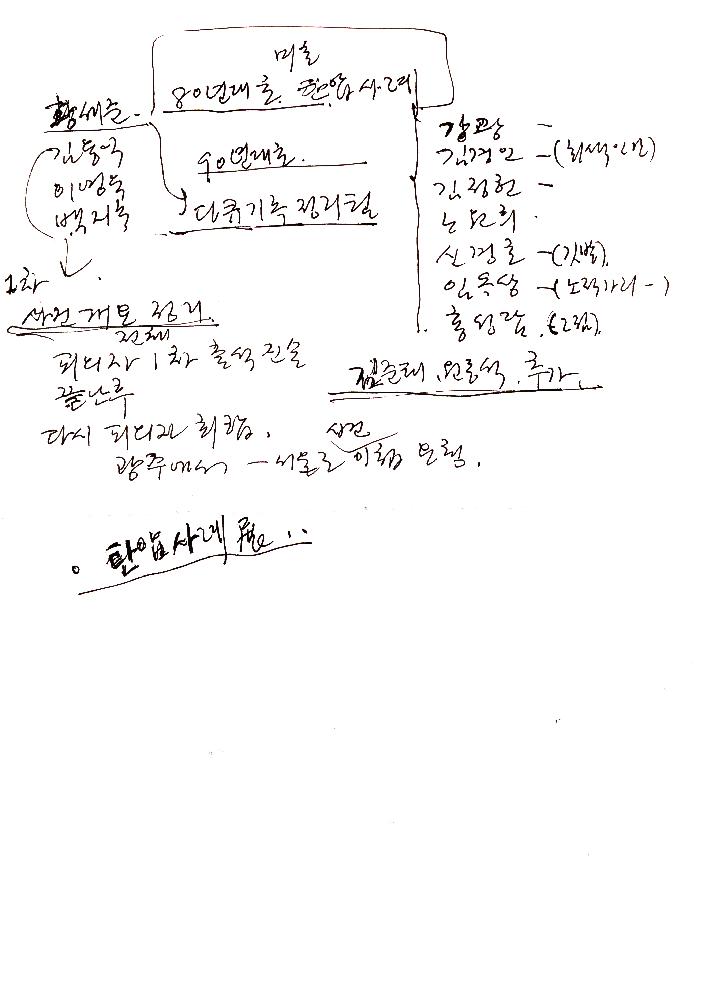 미술
80년대초. 탄압사례
황세준.
김동국
이영욱
백지숙
90년대초.
다큐기록 정리필
강광 -
김경인 -(회색인간)
김정헌 -
노원희.
신경호 -(깃발).
임옥상 -(노적가리-)
홍성담.(그림).
김준태. 원동석. 추가.
1차
사건개요 정리.
전체
피의자 1차 출석 진술
끝난후
다시 피의자 취합.
광주에서 - 서울로 사건 이첩 요청.
. 탄압사례 展..